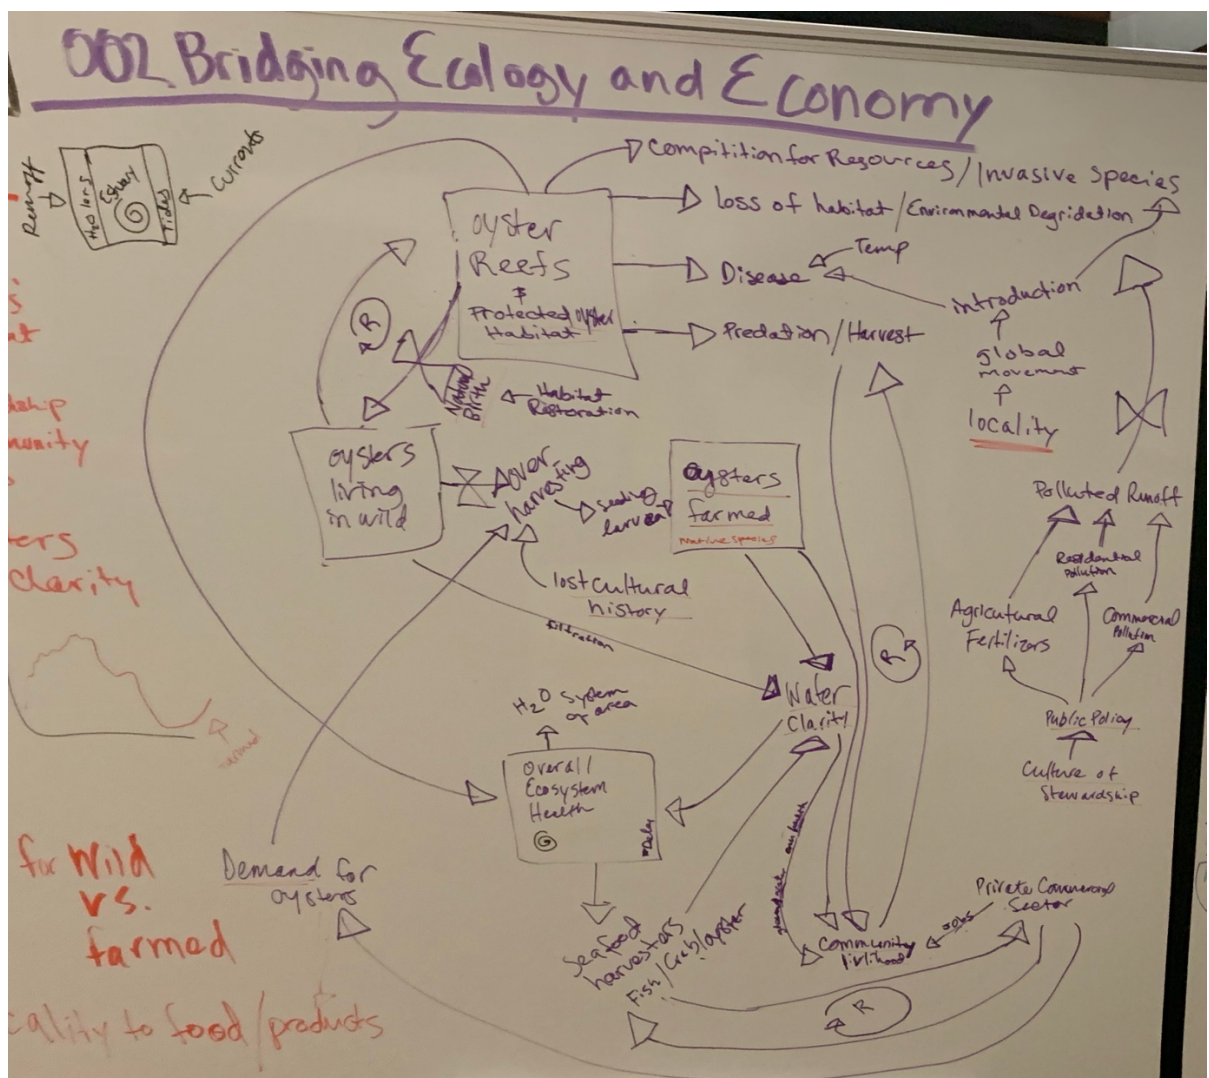 002 Bridging Ecology and Economy
Runoff
H2O lens
Estuary
Tides
Currents
Compitition for Resources/Invasive Species
loss of habitat/Environmental Degridation
Disease
Temp
Predation/Harvest
introduction
global
movement
locality
oyster
Reefs
Protected oyster
Habitat
R
Natural
Birth
Habitat
Restoration
oysters
living
in wild
over
harvesting
seeding
larvea
oysters
farmed
native species
lost cultural
history
filtration
Polluted Runoff
Residential
Pollution
Agricultural
Fertilizors
Commercial
Pollution
Public Policy
Culture of
Stewardship
R
Water
Clarity
H2O System
of area
Overall
Ecosystem
Health
Delay
Demand for
oysters
Seafood
harvesters
Fish/Crab/oyster
Community
livlihood
Jobs
Private Commercial
Sector
R
clarity
farmed
for Wild
vs.
farmed
cality to food/products